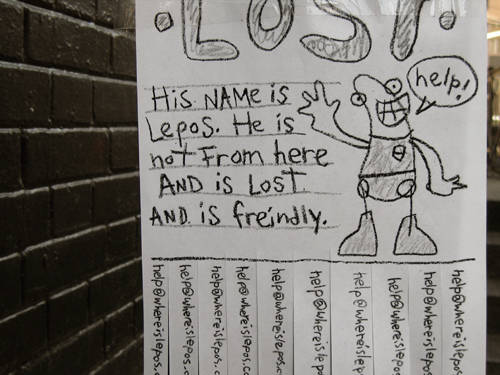 ·LOST·
His NAMe is
Lepos. He is
not From here
AND is LOST
AND is freindly.
help!
help@whereislepos.
help@whereislepos.c
help@whereislepos.c
help@whereislepos.co
help@whereislepos.c
help@whereislepo
help@whereislepos
help@whereislepos
help@whereislepos
help@whereislepos.